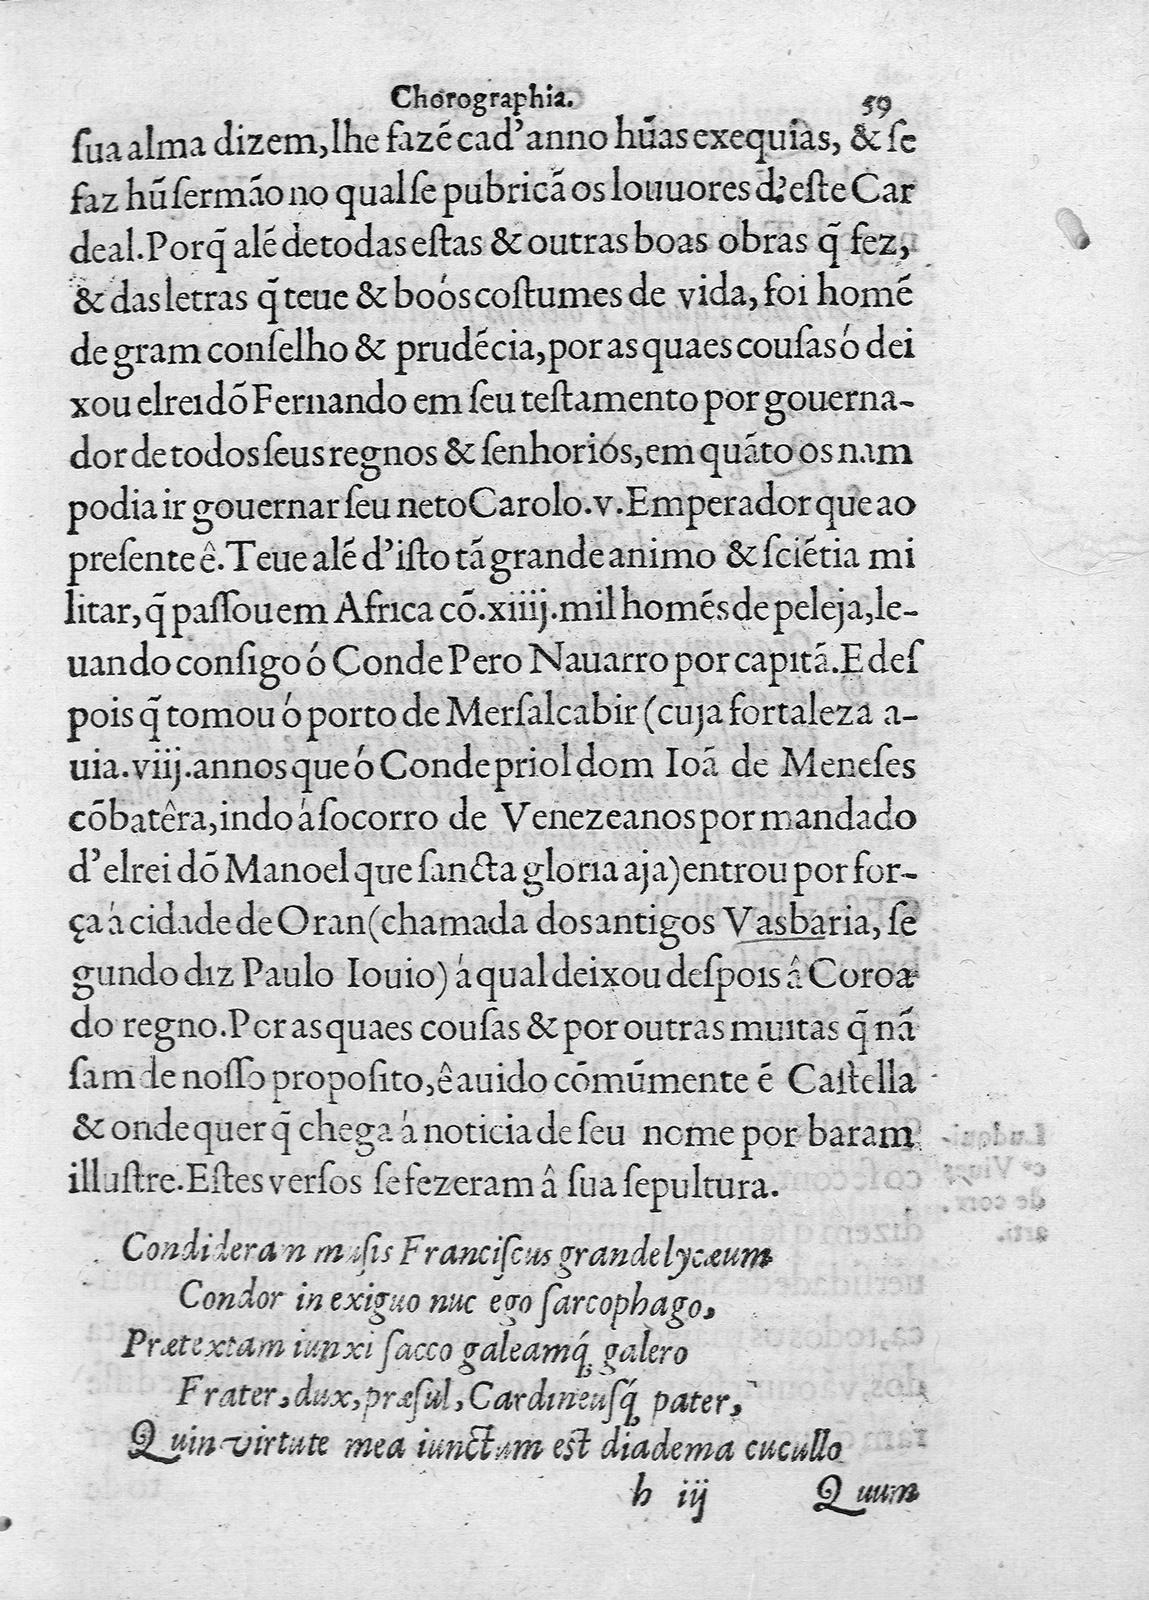 Chorographia. 59
ſua alma dizem, lhe fazẽ cad’anno hũas exequias, & ſe
faz hũ ſermão no qual ſe pubricã os louuores d’eſte Car
deal. Porq̃ alẽ de todas eſtas & outras boas obras q̃ fez,
& das letras q̃ teue & boós coſtumes de vida, foi homẽ
de gram conſelho & prudẽcia, por as quaes couſas ó dei
xou elrei dõ Fernando em ſeu teſtamento por gouerna-
dor de todos ſeus regnos & ſenhoriós, em quãto os nam
podia ir gouernar ſeu neto Carolo.v. Emperador que ao
preſente ê. Teue alẽ d’iſto tã grande animo & ſciẽtia mi
litar, q̃ paſſou em Africa cõ.xiiij.mil homẽs de peleja, le-
uando conſigo ó Conde Pero Nauarro por capitã. E deſ
pois q̃ tomou ó porto de Merſalcabir (cuja fortaleza a-
uia.viij.annos que ó Conde priol dom Ioã de Meneſes
cõbatêra, indo á ſocorro de Venezeanos por mandado
d’elrei dõ Manoel que ſancta gloria aja) entrou por for-
ça á cidade de Oran (chamada dos antigos Vasbaria, ſe
gundo diz Paulo Iouio) á qual deixou deſpois â Coroa
do regno. Por as quaes couſas & por outras muitas q̃ nã
ſam de noſſo propoſito, ê auido cõmũmente ẽ Caſtella
& onde quer q̃ chega á noticia de ſeu nome por baram
illuſtre. Eſtes verſos ſe fezeram â ſua ſepultura.
Condideram muſis Franciſcus grande lycæum
Condor in exiguo nuc ego ſarcophago,
Prætextam iunxi ſacco galeamq́; galero
Frater, dux, præſul, Cardineuſq́; pater,
Quin virtute mea iunctum eſt diadema cucullo
h iij Quum